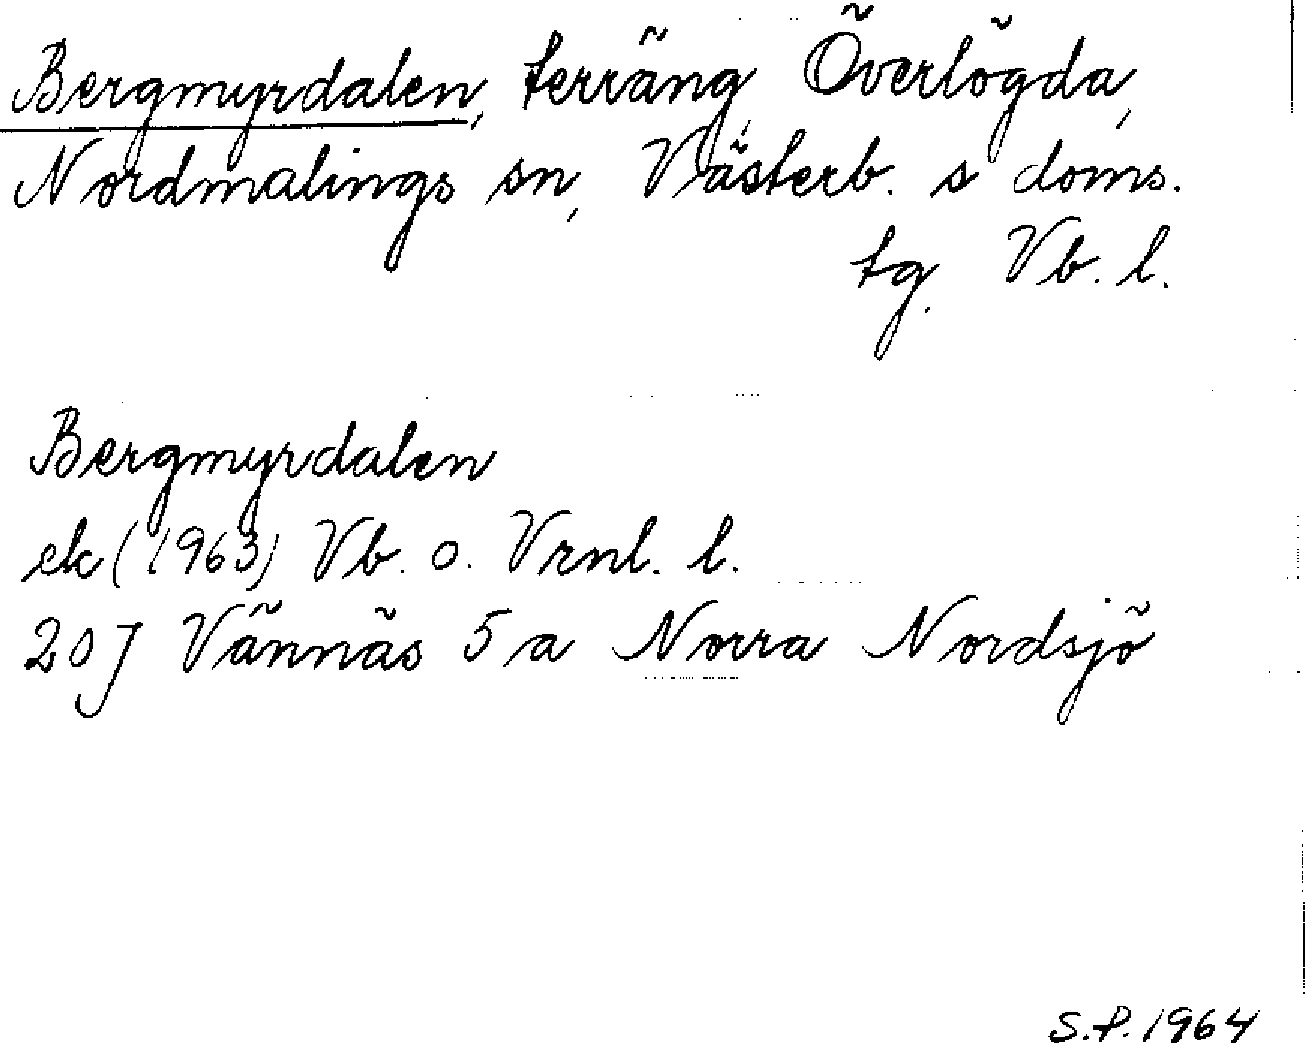 Bergmyrdalen, terräng, Överlögda,
Nordmalings sn, Västerb. s doms.
tg. Vb. l.
Bergmyrdalen
ek (1963) Vb. o. Vrnl. l.
20J Vännäs 5a Norra Nordsjö
S.P. 1964